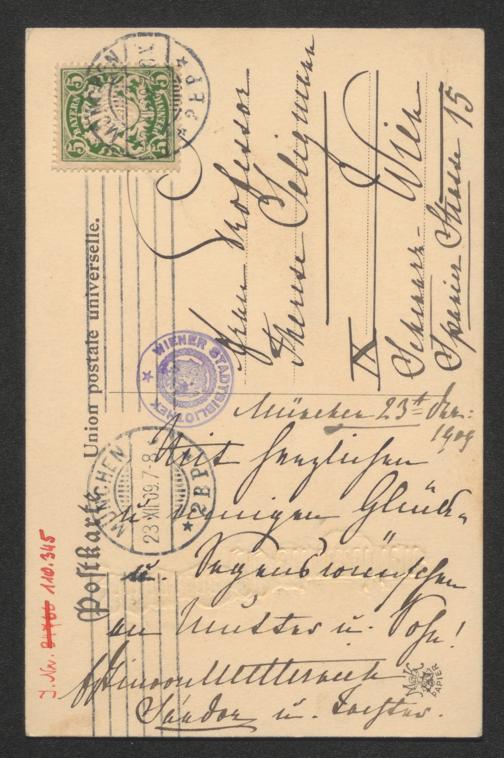 Postkarte
Union postale universelle.
BAYERN
5 5
PFENNIG
5 5
MÜNCHEN
* 2 B.P.
WIENER STADTBIBLIOTHEK *
MÜNCHEN
23 XII 09.7-8
* 2 B.P.
Frau Professor
Therese Seligmann
IX Wien
Schwarz-
Spanier Strasse 15
München 23t Dez.:
1909
Mit herzlichen
u innigen Glück-
u. Segenswünschen
an Mutter u. Sohn!
Sándor u. Tochter.
J.Nr. 110.345
M&K
PAPIER